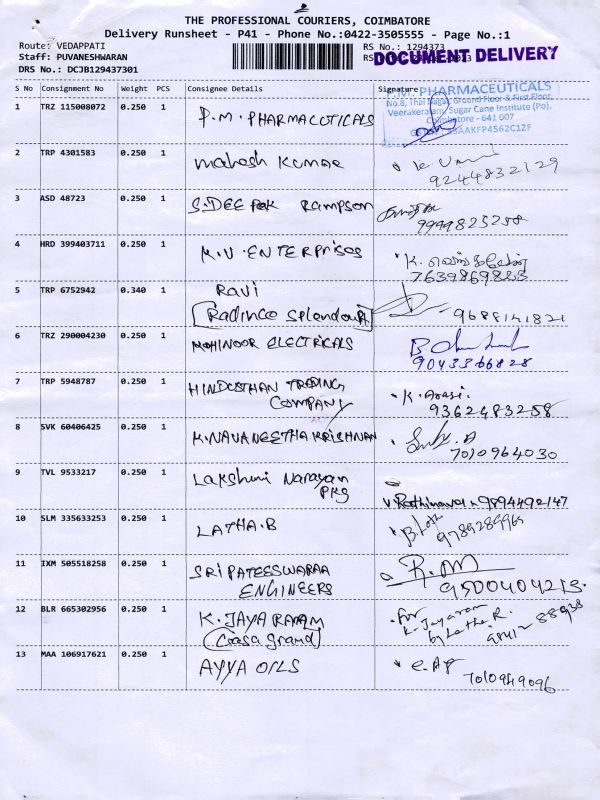 THE PROFESSIONAL COURIERS, COIMBATORE
Delivery Runsheet - P41 - Phone No.:0422-3505555 - Page No.:1
Route: VEDAPPATI
RS No.: 1294373
Staff: PUVANESHWARAN
DOCUMENT DELIVERY
DRS No.: DCJB129437301
S No Consignment No Weight PCS Consignee Details Signature
P.M. PHARMACEUTICALS
No.8, Thai Nagar, Ground Floor & First Floor,
Veerakeralam, Sugar Cane Institute (Po),
Coimbatore - 641 007
1 TRZ 115008072 0.250 1 P.M. PHARMACUTICALS
2 TRP 4301583 0.250 1 Mahesh Kumar
9244832129
3 ASD 48723 0.250 1 S.DEEPAK RAMPSON
9944825258
4 HRD 399403711 0.250 1 M.V. ENTERPRISES
7639869883
5 TRP 6752942 0.340 1 RAVI
Radinco Splendour 9688141821
6 TRZ 290004230 0.250 1 MOHINOOR ELECTRICALS
9043366828
7 TRP 5948787 0.250 1 HINDUSTHAN TRADING
COMPANY K. Arasi
9362483258
8 SVK 60406425 0.250 1 K.NAVANEETHA KRISHNAN
7010964030
9 TVL 9533217 0.250 1 Lakshmi Narayan
PKG V Rathinavel 9894492147
10 SLM 335633253 0.250 1 LATHA.B B. Latha
9789289969
11 IXM 505518258 0.250 1 SRI PATEESWARAA R.M
ENGINEERS 9500404213.
12 BLR 665302956 0.250 1 K. JAYARAMAM for
Casa grand K. Jayaram
by Latha R.
13 MAA 106917621 0.250 1 AYYA OILS
7010949096